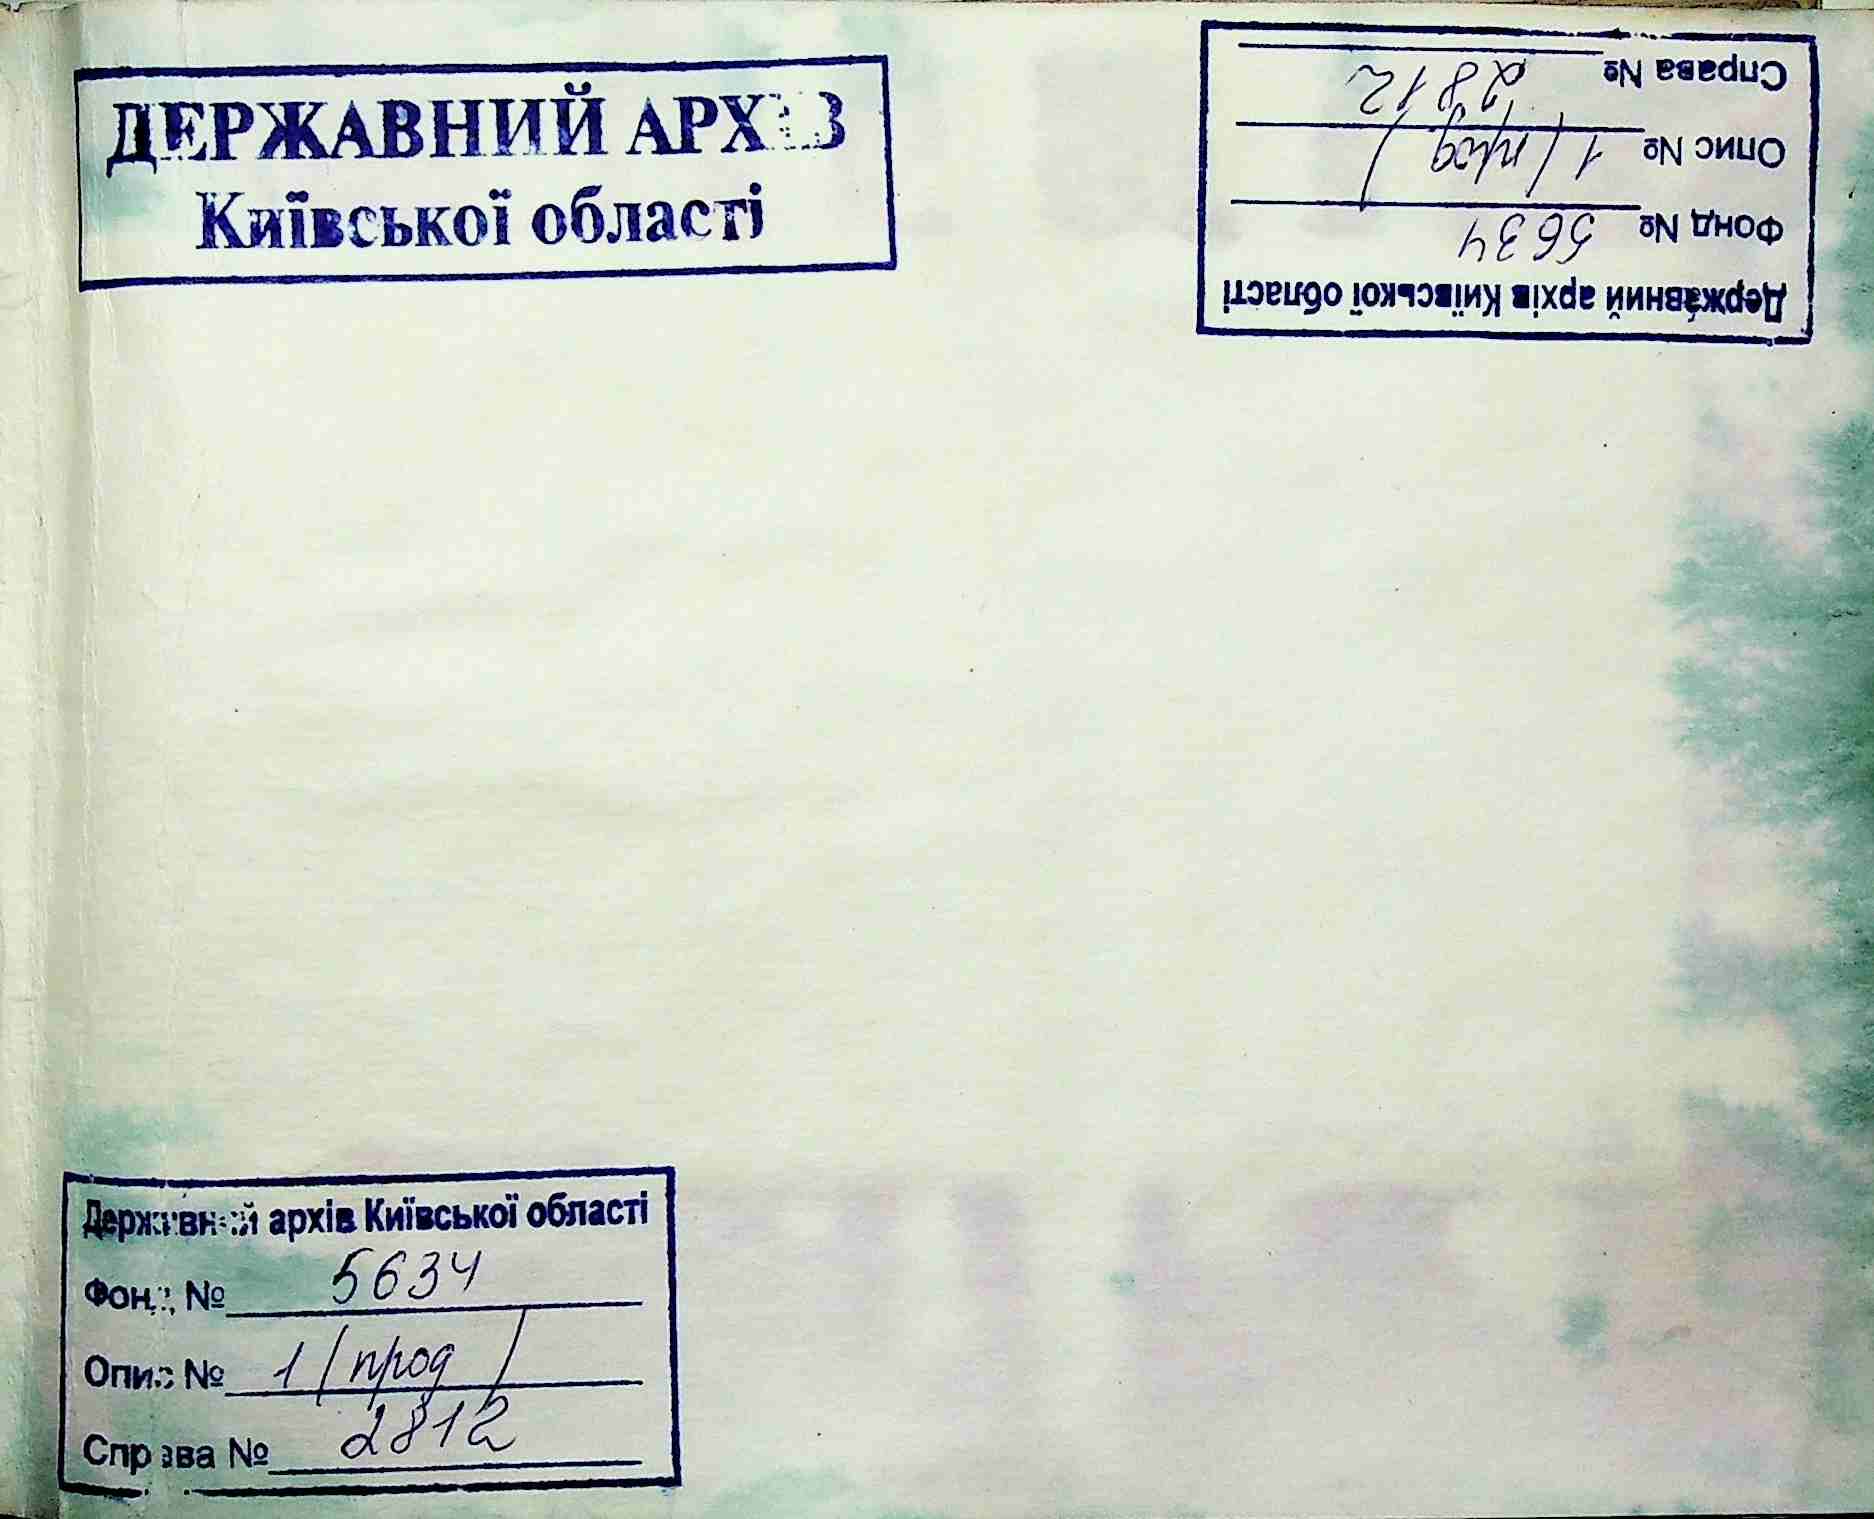 ДЕРЖАВНИЙ АРХІВ
Київської області
Державний архів Київської області
Фонд № 5634
Опис № 1 /прод/
Справа № 2812
Державний архів Київської області
Фонд № 5634
Опис № 1 /прод/
Справа № 2812